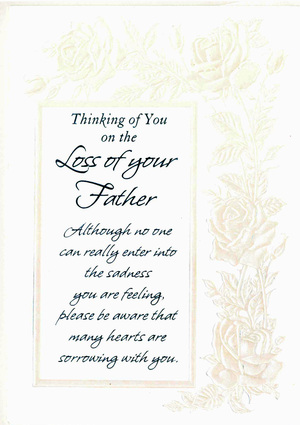 Thinking of You
on the
Loss of your
Father
Although no one
can really enter into
the sadness
you are feeling,
please be aware that
many hearts are
sorrowing with you.